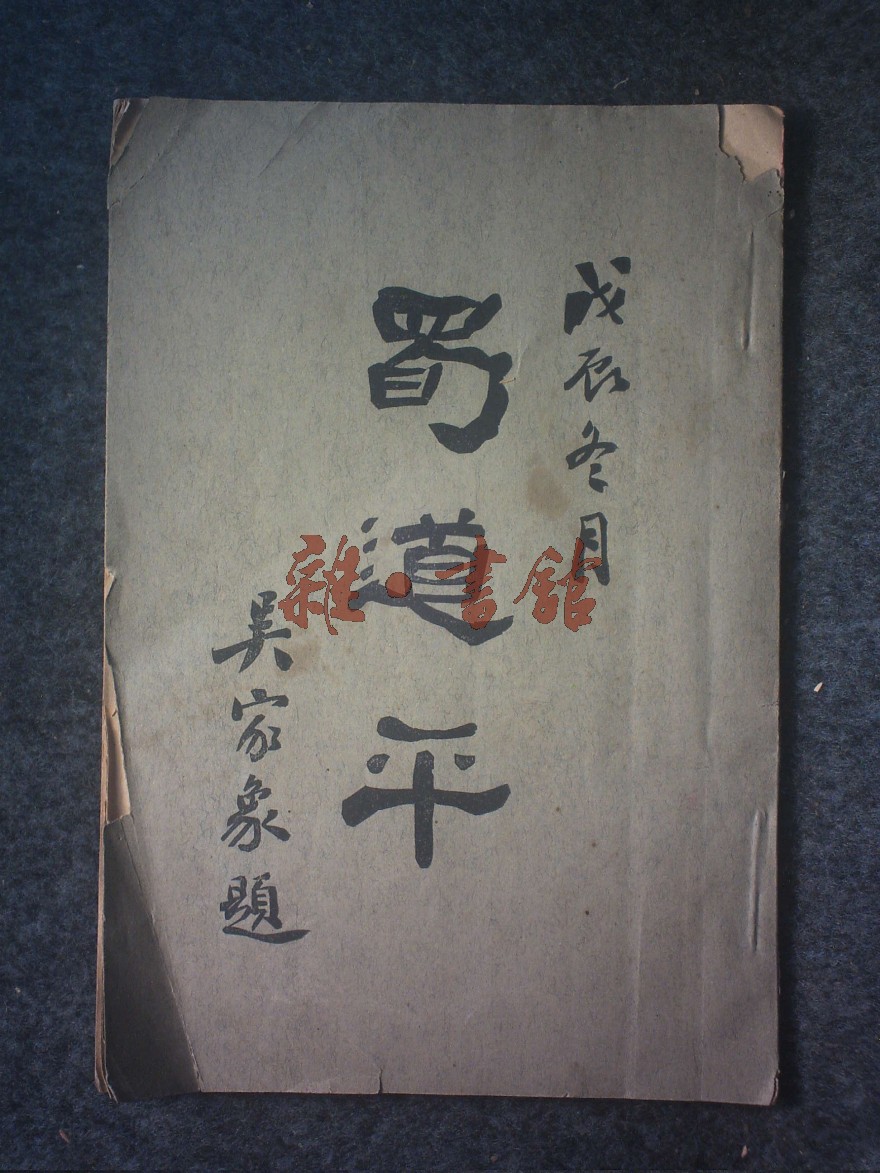 戊辰冬月
蜀道平
吴家象題
雜·書館